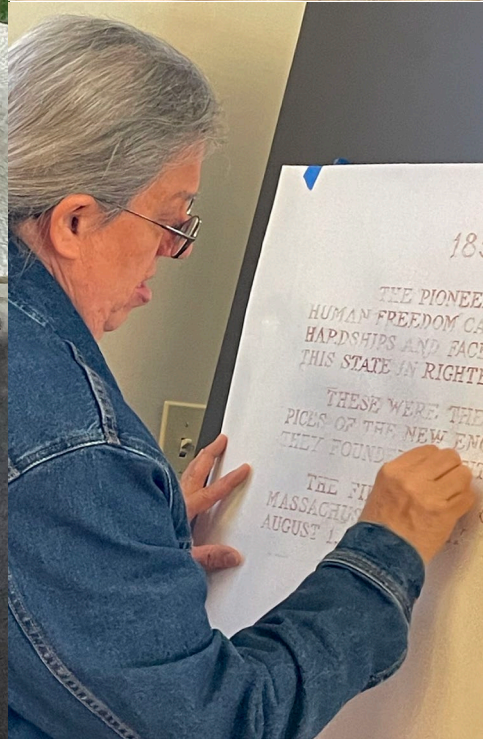 185
THE PIONEE
HUMAN FREEDOM CA
HARDSHIPS AND FAC
THIS STATE IN RIGHTE
THESE WERE THE
PICES OF THE NEW ENG
THEY FOUNDE
THE FI
MASSACHUS
AUGUST 1